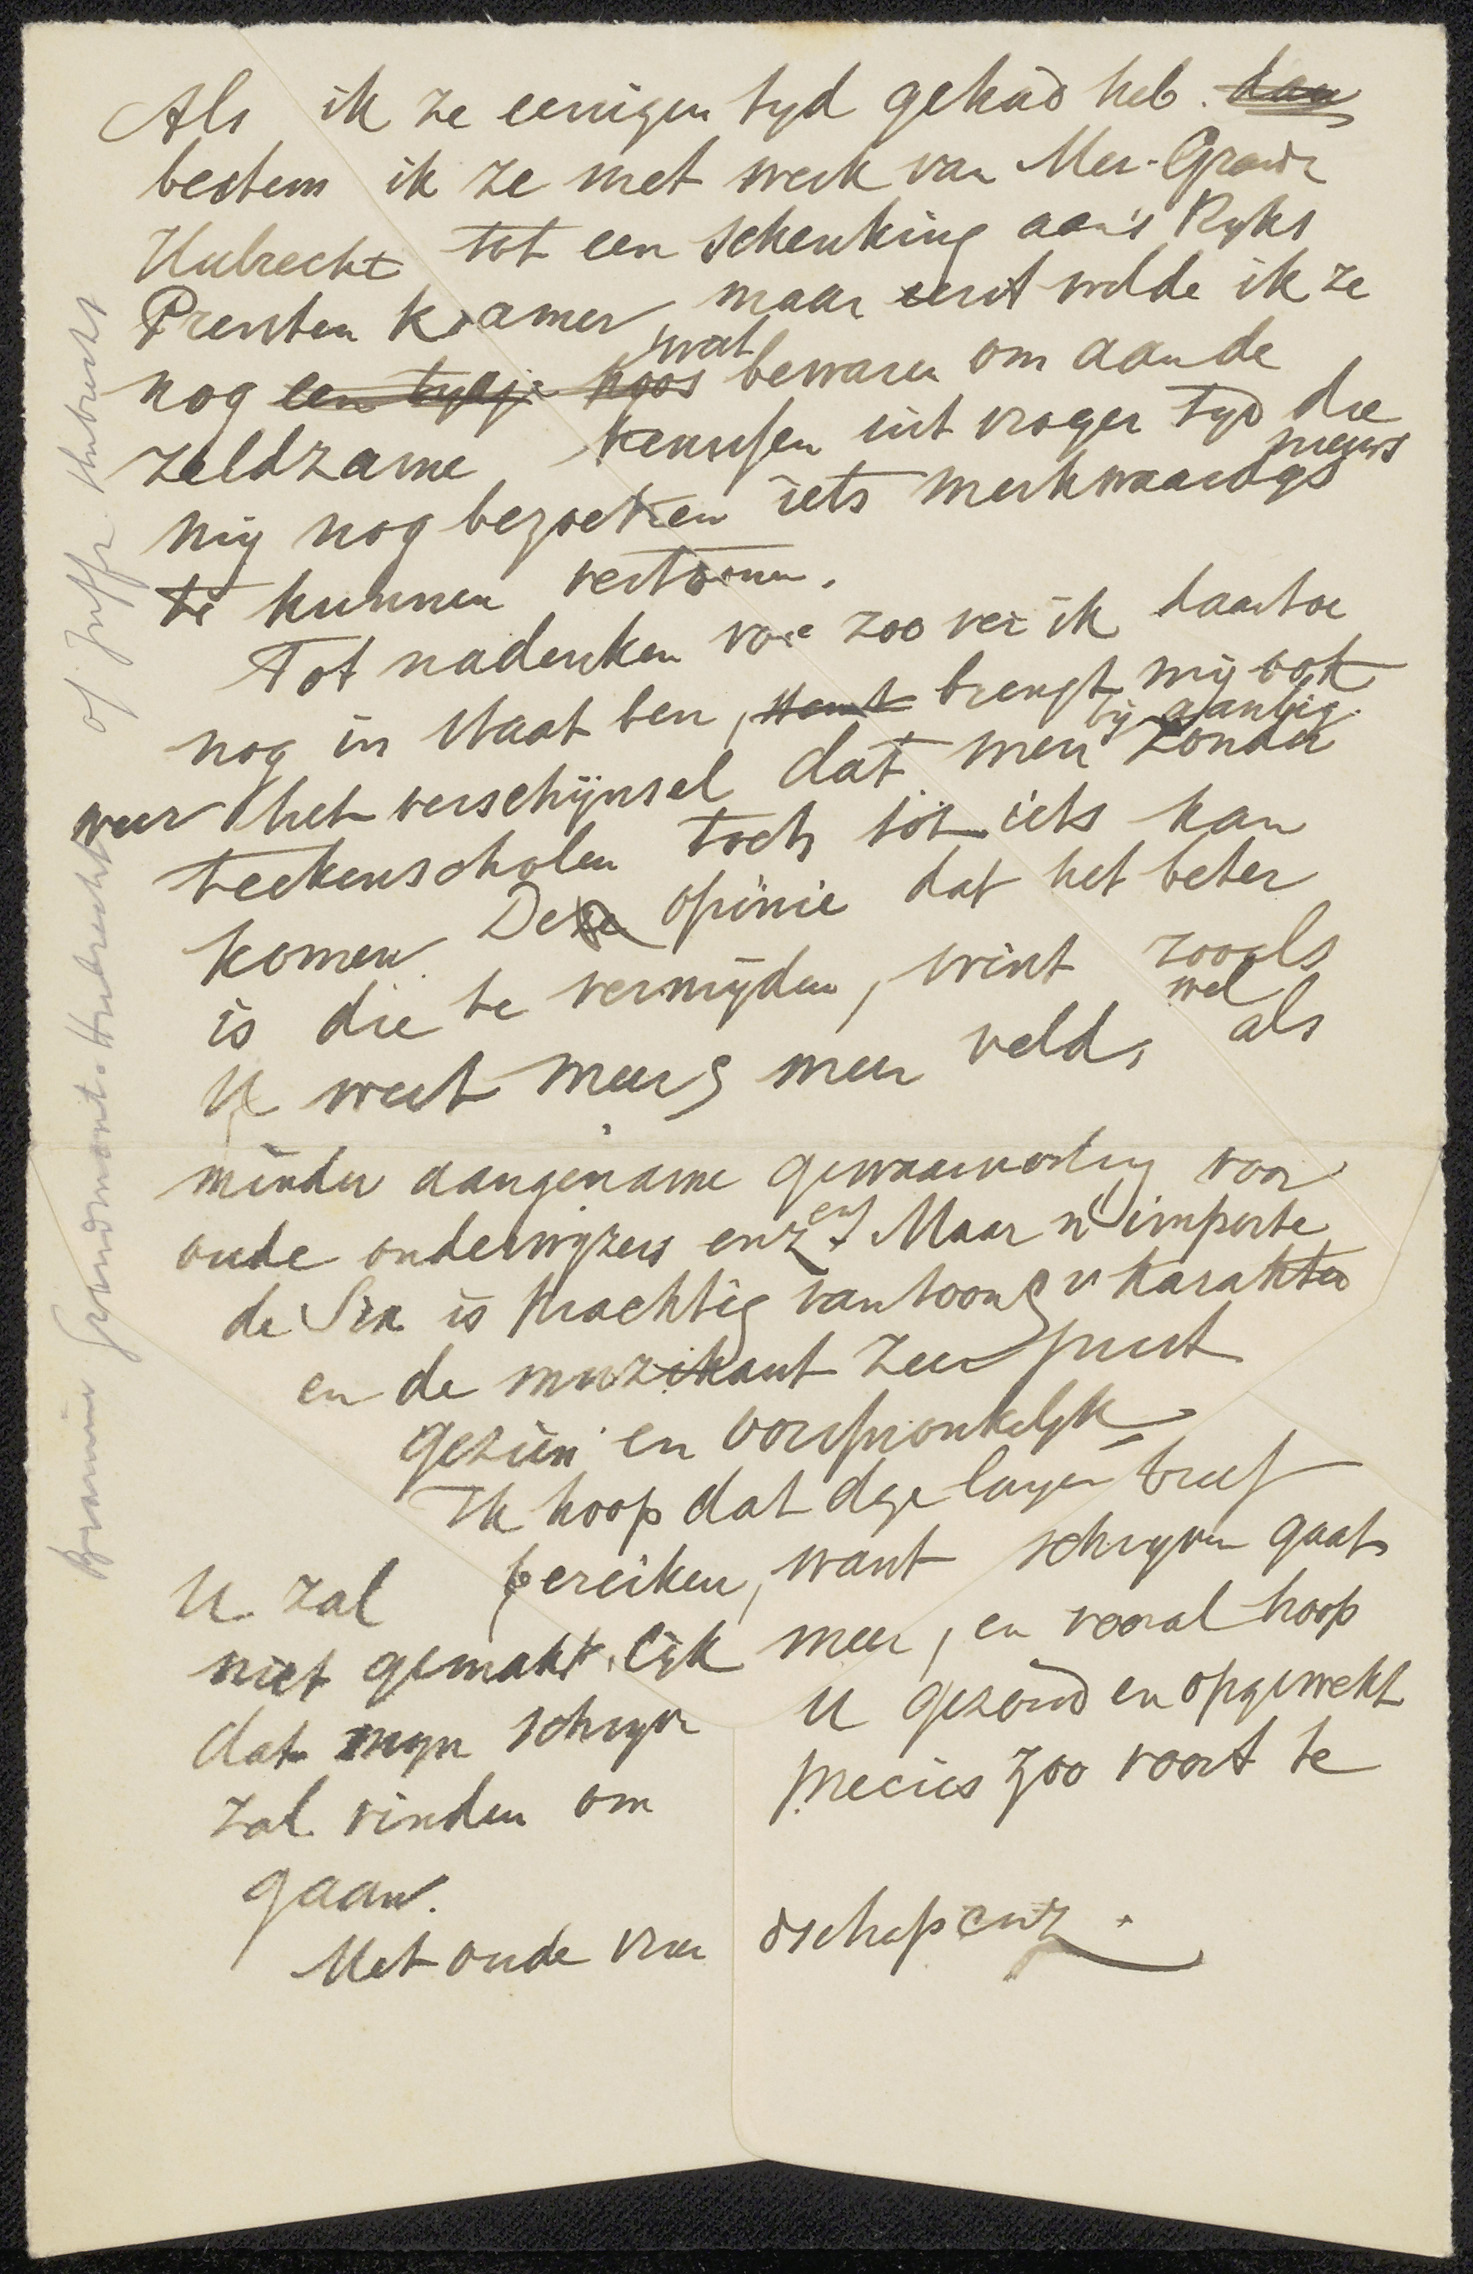 Als ik ze eenigen tyd gehad heb. dan
bestem ik ze met werk van Mer. Grandt
Hubrecht tot een schenking aan 's Ryks
Prenten kamer, maar eerst wilde ik ze
nog een tydje wat bewaren om aan de
zeldzame kennissen uit vroeger tyd die
mij nog bezoeken iets merkwaardigs nieuws
te kunnen vertoonen.
Tot nadenken voor zoo ver ik daartoe
nog in staat ben, brengt mij ook
weer het verschijnsel dat men bij aanleg zonder
teekenscholen toch tot iets kan
komen. Deze opinie dat het beter
is die te vermyden, wint zooals
U weet meer & meer veld, wel als
minder aangename gewaarwording voor
oude onderwyzers enz. Maar n'importe
de Sra is krachtig van toon & v karakter
en de muzikant zeer juist
gezien en oorspronkelyk
Ik hoop dat deze lange brief
U zal bereiken, want schryven gaat
niet gemakkelijk meer, en vooral hoop
dat myn schryven U gezond en opgewekt
zal vinden om precies zoo voort te
gaan.
Met oude vriendschap enz.
Bramine Grandmont-Hubrecht
of Juffr. Hubrecht